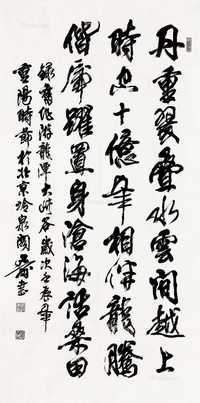 丹重翠叠水云间越上
时空十亿年相伴龙腾
偕虎跃置身沧海话桑田
录旧作游龙潭大峡谷岁次壬辰年
重阳时节于北京冷泉阁